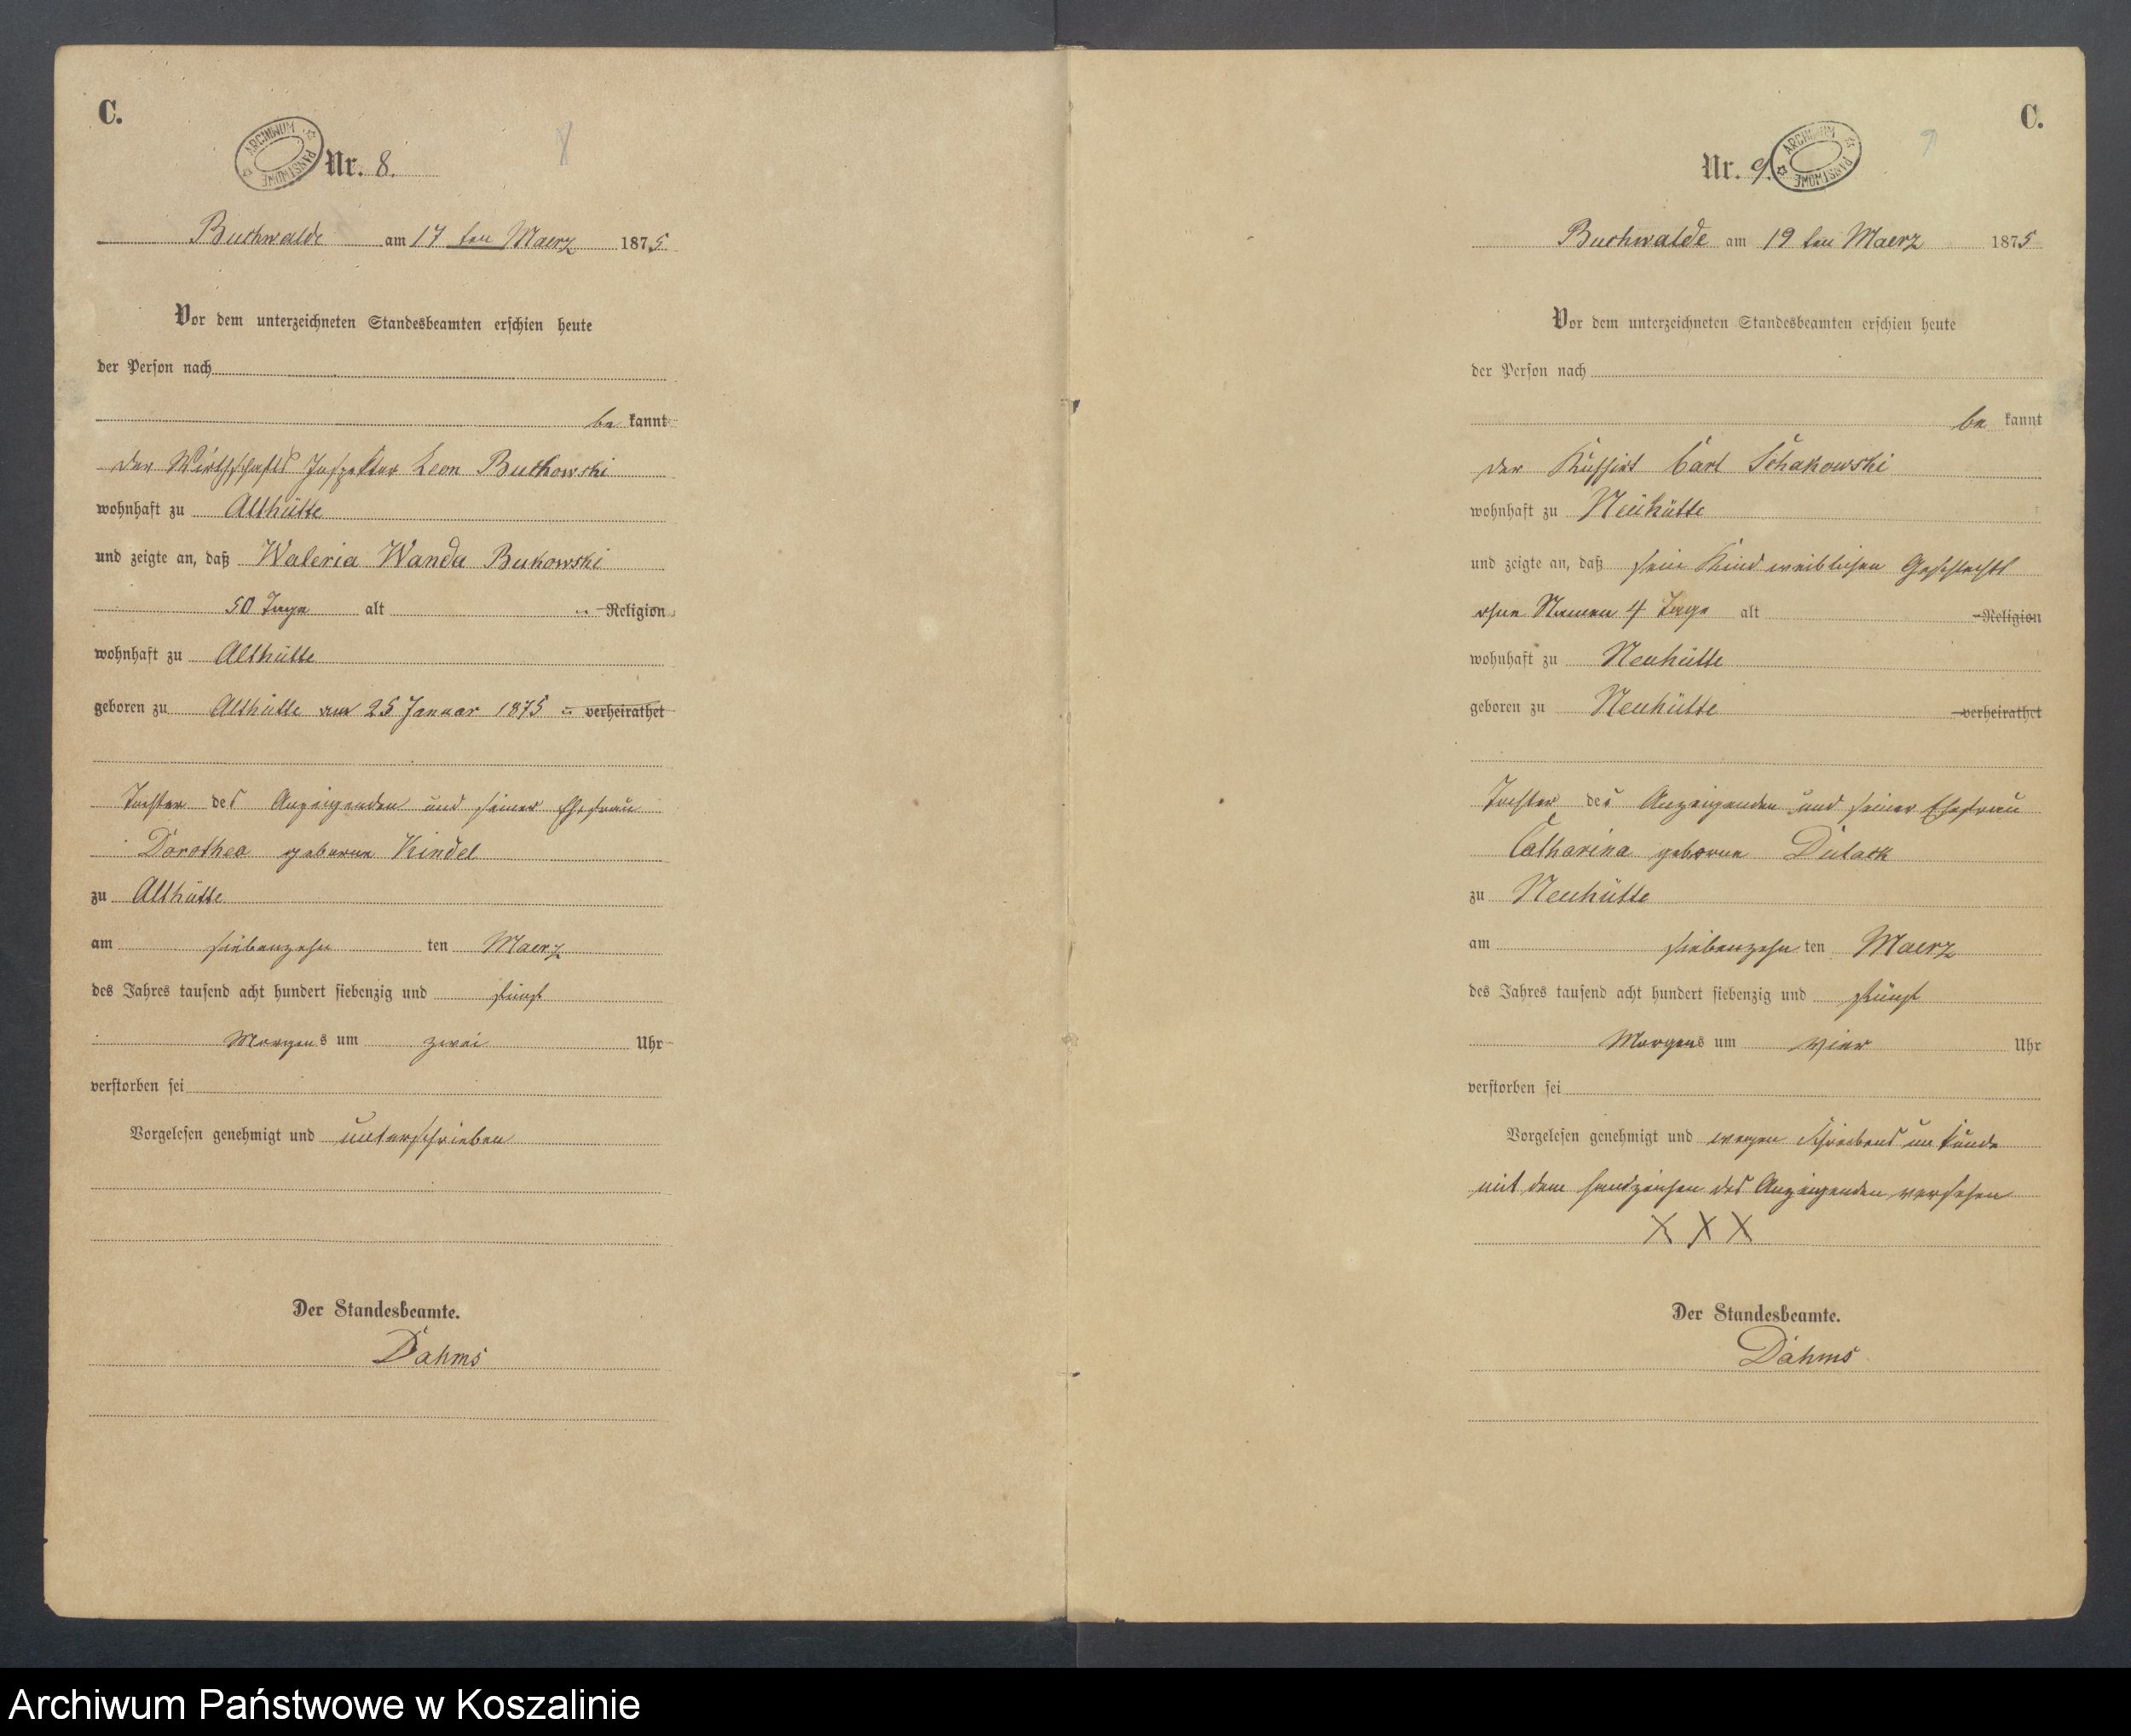 C.
ARCHIWUM PAŃSTWOWE
Nr. 8.
8
Buchwalde am 17 ten Maerz 1875
Vor dem unterzeichneten Standesbeamten erschien heute
der Person nach
be kannt
der Wirthschafts Inspektor Leon Bukowski
wohnhaft zu Althütte
und zeigte an, daß Waleria Wanda Bukowski
50 Tage alt Religion
wohnhaft zu Althütte
geboren zu Althütte am 25 Januar 1875 verheirathet
Tochter des Anzeigenden und seiner Ehefrau
Dorothea geborne Kindel
zu Althütte
am siebenzehn ten Maerz
des Jahres tausend acht hundert siebenzig und fünf
Morgens um zwei Uhr
verstorben sei
Vorgelesen genehmigt und unterschrieben
Der Standesbeamte.
Dahms
C.
ARCHIWUM PAŃSTWOWE
Nr. 9.
9
Buchwalde am 19 ten Maerz 1875
Vor dem unterzeichneten Standesbeamten erschien heute
der Person nach
be kannt
der Carl Schakowski
wohnhaft zu Neuhütte
und zeigte an, daß sein Kind weiblichen Geschlechts
ohne Namen 4 Tage alt Religion
wohnhaft zu Neuhütte
geboren zu Neuhütte verheirathet
Tochter des Anzeigenden und seiner Ehefrau
Catharina geborne Dulack
zu Neuhütte
am siebenzehn ten Maerz
des Jahres tausend acht hundert siebenzig und fünf
Morgens um vier Uhr
verstorben sei
Vorgelesen genehmigt und wegen Schreibens unkunde
mit dem Handzeichen des Anzeigenden versehen
X X X
Der Standesbeamte.
Dahms
Archiwum Państwowe w Koszalinie